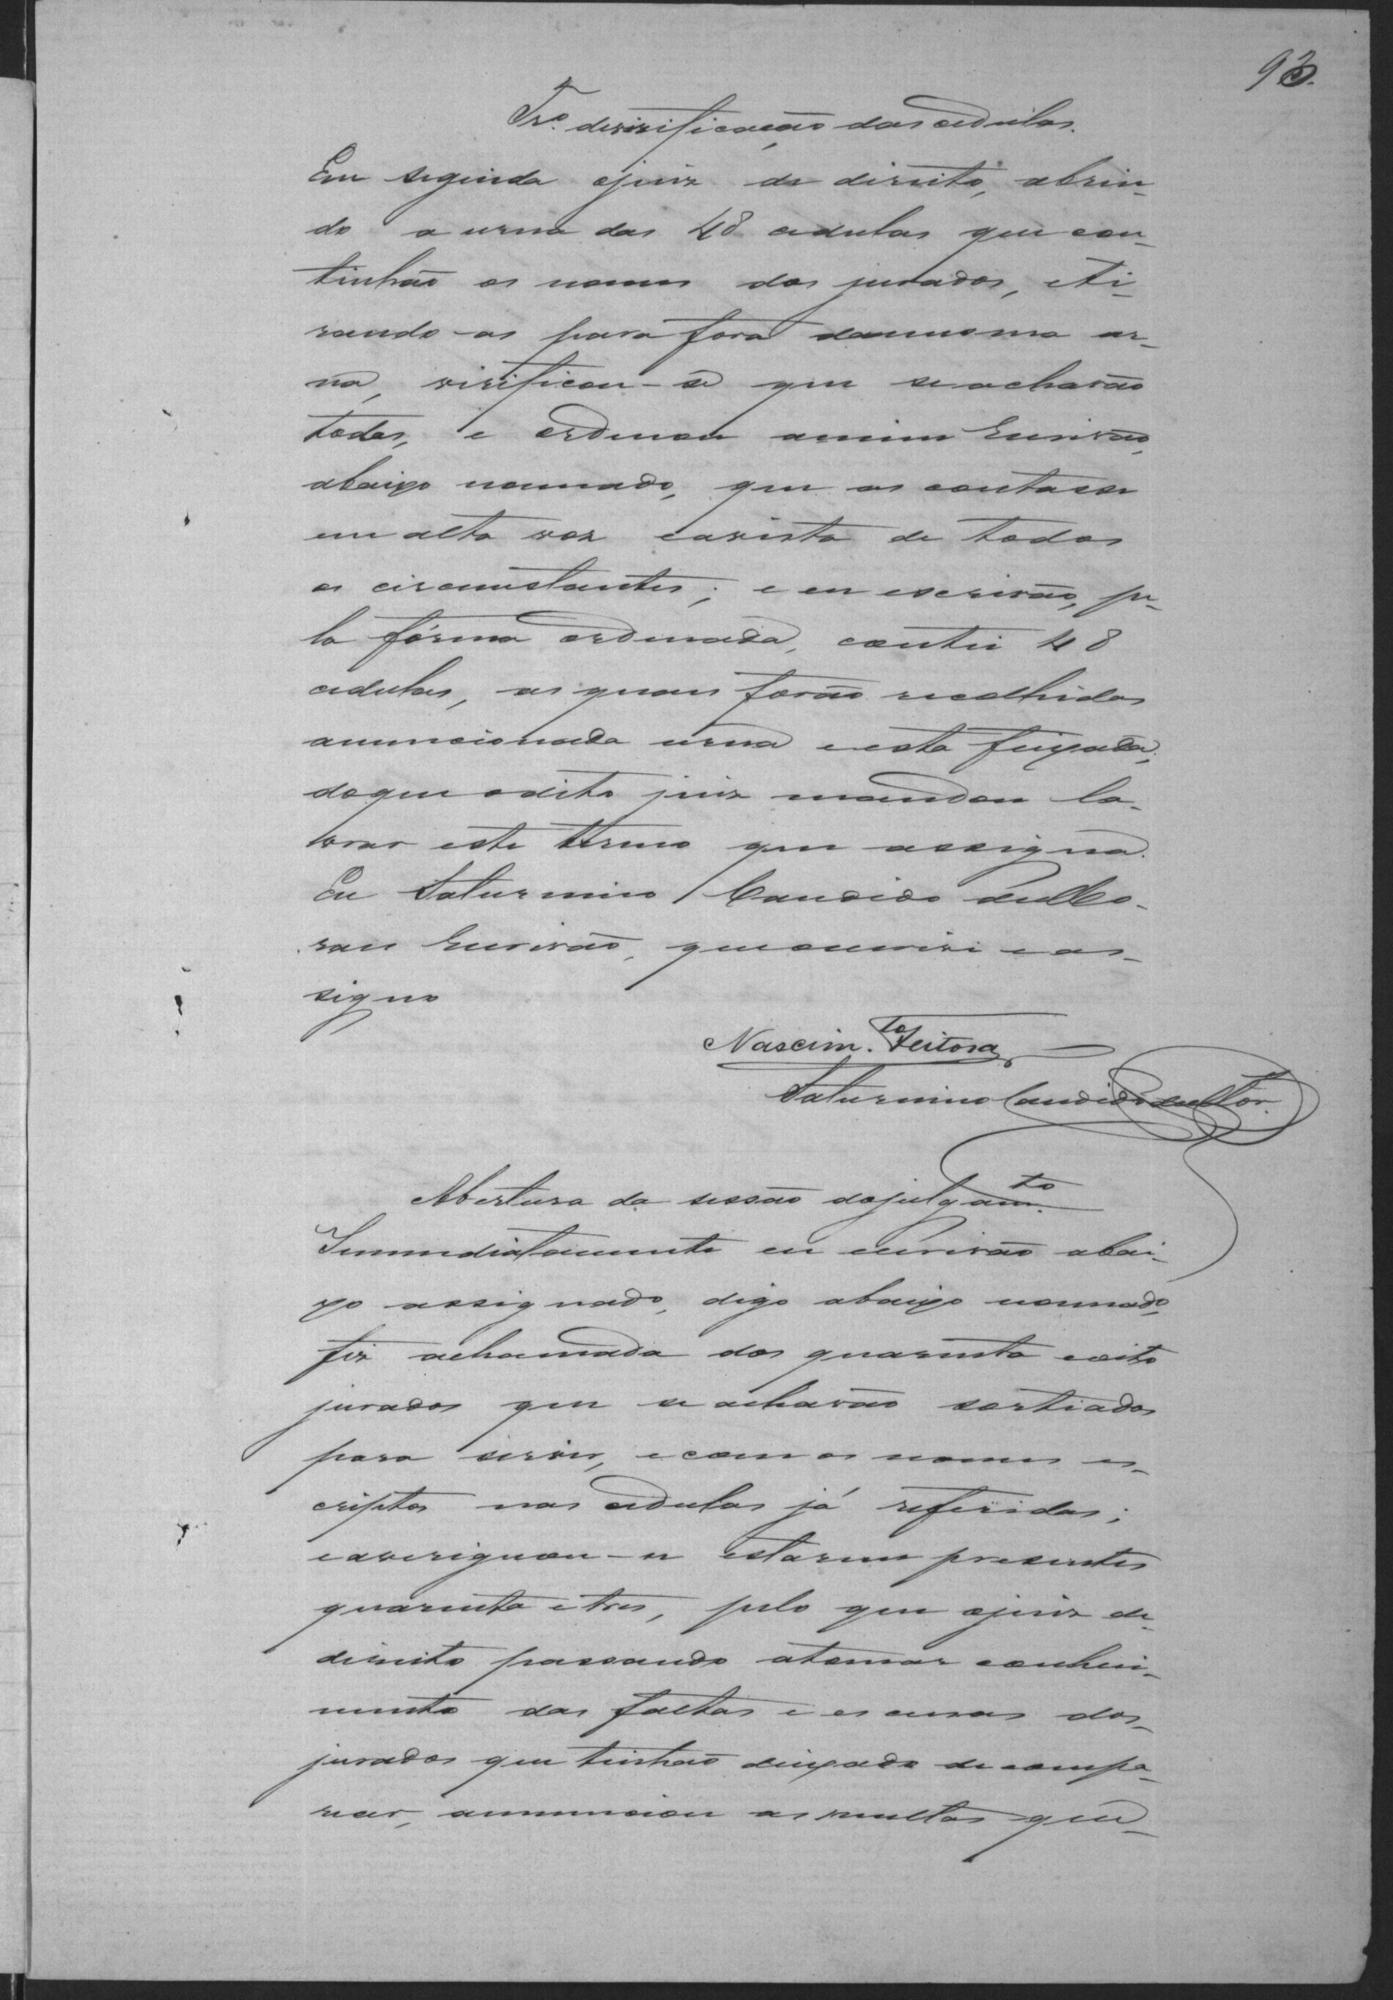 93.
Tr.º de virificação das cedulas.
Em seguida o juiz de direito, abrin-
do a urna das 48 cedulas que con-
tinhão os nomes dos jurados, e ti-
rando-as para fora da mesma ur-
na, virificou-se que se achavão
todas, e ordenou a mim Escrivão,
abaixo nomeado, que as contasse
em alta voz e a vista de todos
os circumstantes; e eu escrivão, pe-
la fórma ordenada, contei 48
cedulas, as quaes forão recolhidas
a mencionada urna e esta feixada;
do que o dito juiz mandou la-
vrar este termo que assigna.
Eu Saturnino Candido
Escrivão, que escrivi e as-
signo
Nascim.to Feitosa
Saturnino Candido
Abertura da sessão do julgam.to
Immediatamente eu escrivão abai-
xo assignado, digo abaixo nomeado,
fiz a chamada dos quarenta e oito
jurados que se achavão sortiados
para servir, e com os nomes es-
criptos nas cedulas já referidas;
e averiguou-se estarem presentes
quarenta e tres, pelo que o juiz de
direito passando a tomar conheci-
mento das faltas e escusas dos
jurados que tinhão deixado de compa-
recer, annunciou as multas que